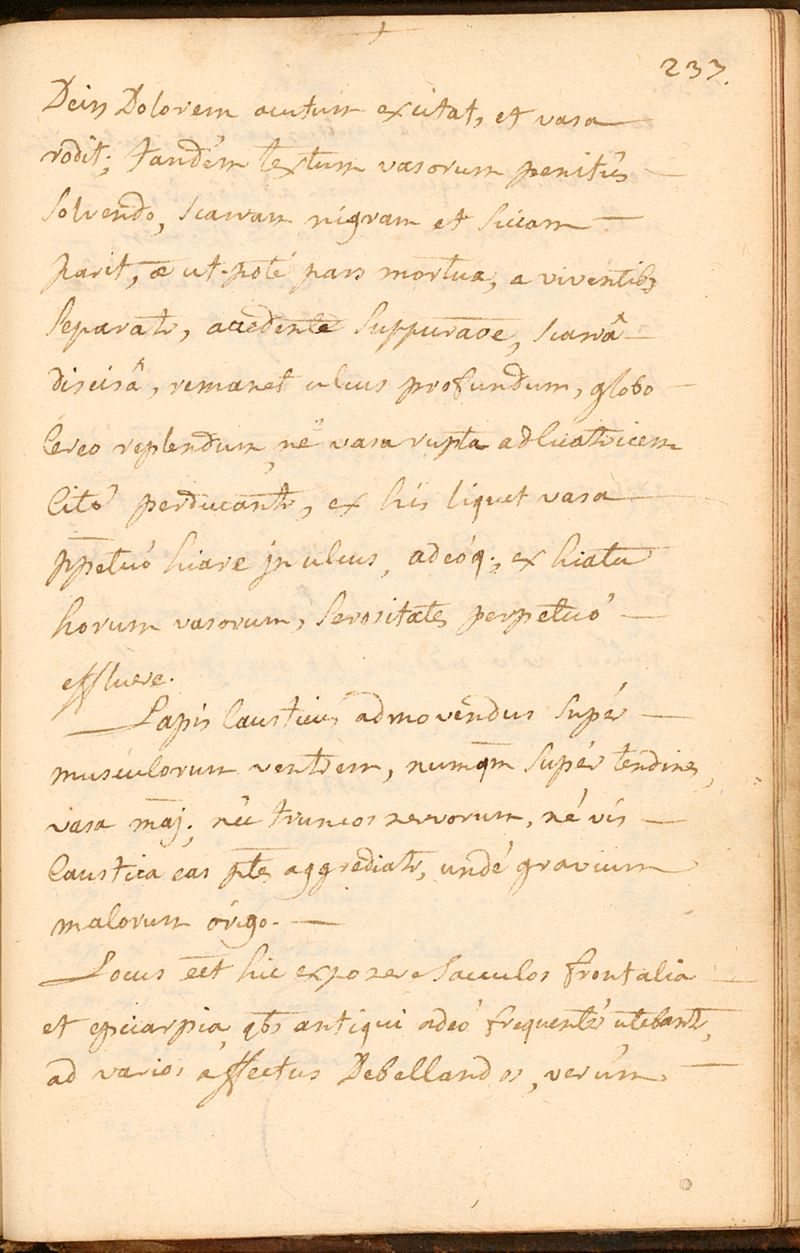 237.
Dein Dolorem acutum excitat, et vasa
rodit; tandem textum vasorum penitùs
Solvendo, scarram nigram et siccam
parit, æ ut-poté pars mortua, a viventibs
Separatr, accedente Suppuraõe, scarrâ
discisâ, remanet ulcus profundum, globo
Cereo replendum, né vasa rupta ad Cicatricem
Citò perducantr, ex his liquet vasa
ppetuó hiare jn ulcus, adeóq; ex hiatu
horum vasorum, Serositates perpetuó
effluere.
Lapis Causticus admovendus Supér
musculorum ventrem, numqm Supér tendines,
vasa maj; nec truncos nervorum, né vis
Caustica eas ptes aggrediatr, undé gravium
malorum origo.
Locus eèt hic exponere Sacculos frontalia
et epicarpia, qbs antiqui adeó frequentér utebantr,
ad varios affectus Debellandos, verúm